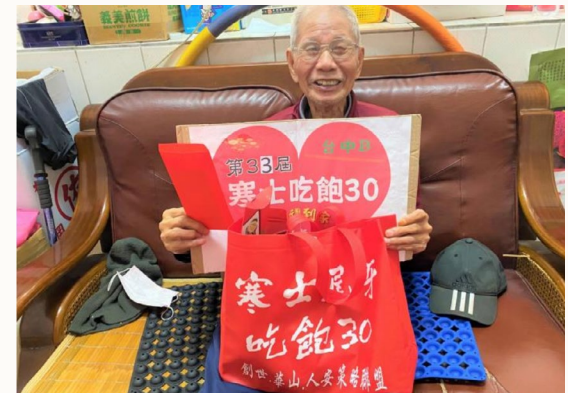 義美煎餅
第33屆
寒士吃飽30
寒士尾牙
吃飽30
創世.華山.人安策略聯盟